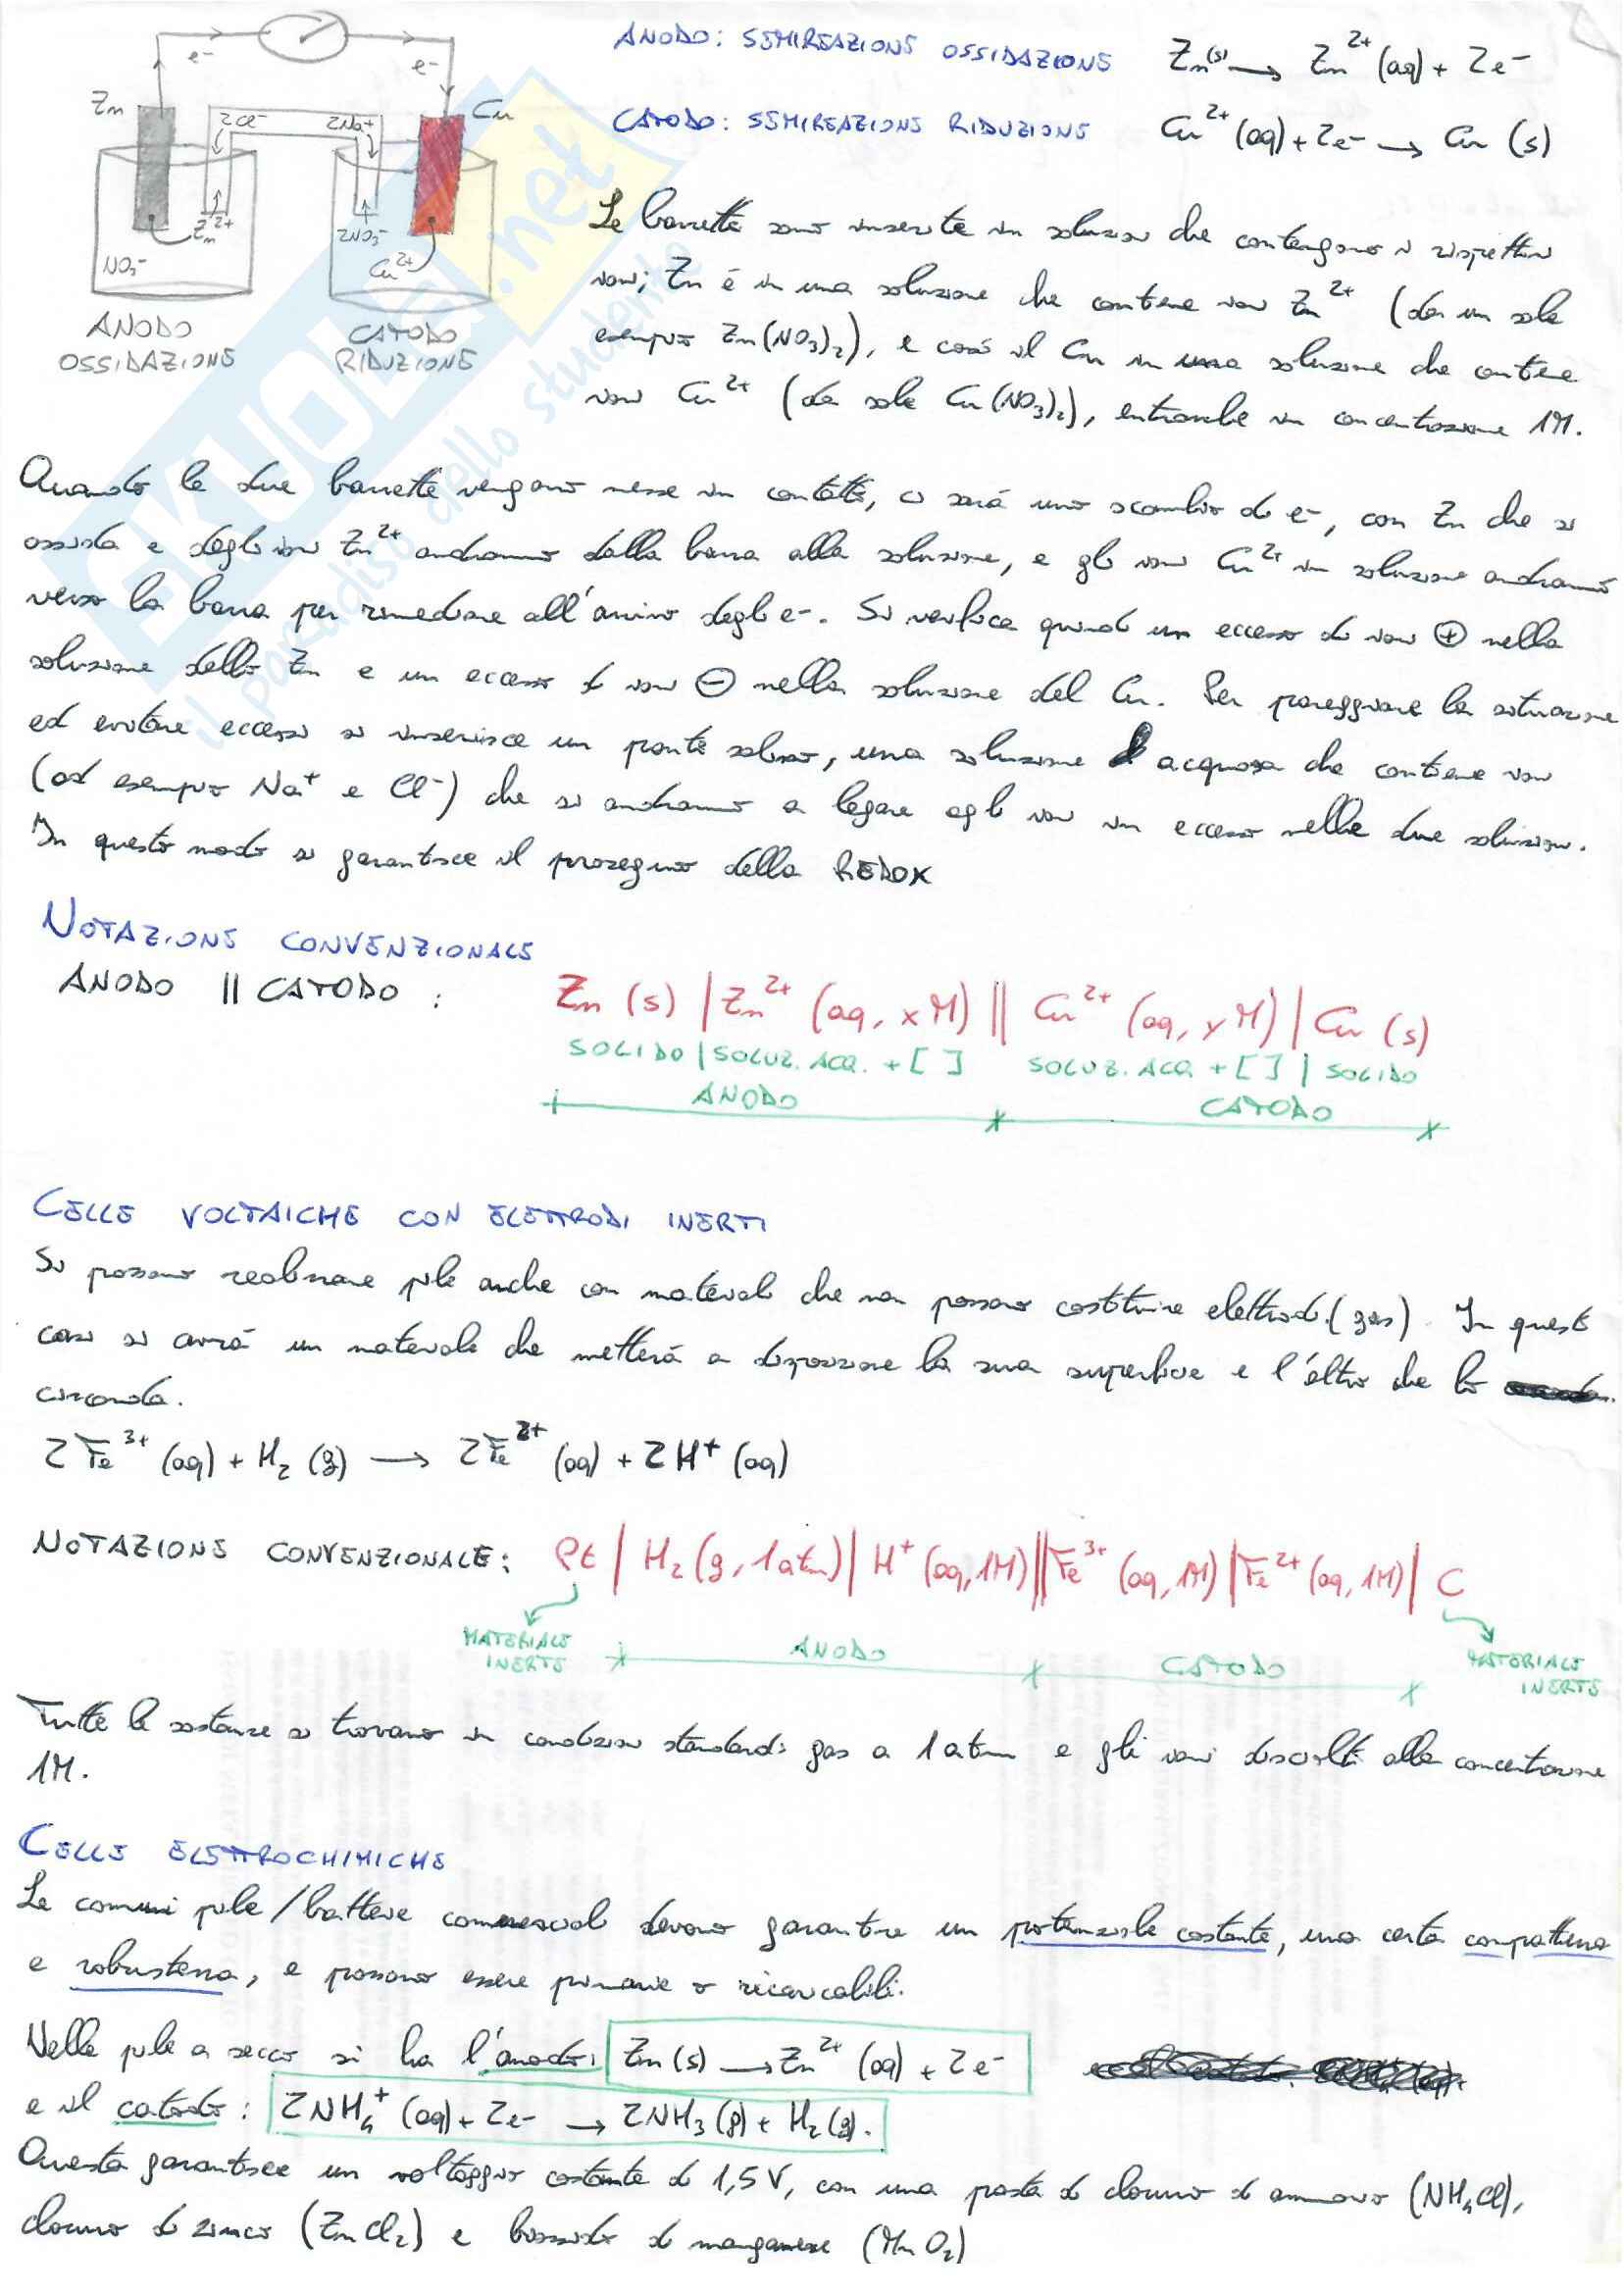 e⁻ e⁻
Zn 2Cl⁻ 2Na⁺ Cu
NO₃⁻ Zn²⁺ 2NO₃⁻ Cu²⁺
ANODO
OSSIDAZIONE
CATODO
RIDUZIONE
ANODO: SEMIREAZIONE OSSIDAZIONE Zn(s) → Zn²⁺ (aq) + 2e⁻
CATODO: SEMIREAZIONE RIDUZIONE Cu²⁺ (aq) + 2e⁻ → Cu (s)
Le barrette sono inserite in soluzioni che contengono i rispettivi
ioni; Zn è in una soluzione che contiene ioni Zn²⁺ (da un sale
esempio Zn(NO₃)₂), e così il Cu in una soluzione che contiene
ioni Cu²⁺ (da sale Cu(NO₃)₂), entrambe in concentrazione 1M.
Quando le due barrette vengono messe in contatto, ci sarà uno scambio di e⁻, con Zn che si
ossida e degli ioni Zn²⁺ andranno dalla barra alla soluzione, e gli ioni Cu²⁺ in soluzione andranno
verso la barra per rimediare all'arrivo degli e⁻. Si verifica quindi un eccesso di ioni ⊕ nella
soluzione dello Zn e un eccesso di ioni ⊖ nella soluzione del Cu. Per pareggiare la situazione
ed evitare eccessi si inserisce un ponte salino, una soluzione acquosa che contiene ioni
(ad esempio Na⁺ e Cl⁻) che si andranno a legare agli ioni in eccesso nelle due soluzioni.
In questo modo si garantisce il proseguo della REDOX
NOTAZIONE CONVENZIONALE
ANODO || CATODO : Zn (s) | Zn²⁺ (aq, xM) || Cu²⁺ (aq, yM) | Cu (s)
SOLIDO | SOLUZ. ACQ. + [ ] SOLUZ. ACQ + [ ] | SOLIDO
ANODO CATODO
CELLE VOLTAICHE CON ELETTRODI INERTI
Si possono realizzare pile anche con materiali che non possono costituire elettrodi (gas). In questi
casi si avrà un materiale che metterà a disposizione la sua superficie e l'altro che lo
circonda.
2Fe³⁺ (aq) + H₂ (g) → 2Fe²⁺ (aq) + 2H⁺ (aq)
NOTAZIONE CONVENZIONALE: Pt | H₂ (g, 1atm) | H⁺ (aq, 1M) || Fe³⁺ (aq, 1M) | Fe²⁺ (aq, 1M) | C
MATERIALE INERTE ANODO CATODO MATERIALE INERTE
Tutte le sostanze si trovano in condizioni standard: gas a 1 atm e gli ioni disciolti alla concentrazione
1M.
CELLE ELETTROCHIMICHE
Le comuni pile/batterie commerciali devono garantire un potenziale costante, una certa compattezza
e robustezza, e possono essere primarie o ricaricabili.
Nelle pile a secco si ha l'anodo: Zn (s) → Zn²⁺ (aq) + 2e⁻
e il catodo: 2NH₄⁺ (aq) + 2e⁻ → 2NH₃ (g) + H₂ (g).
Questa garantisce un voltaggio costante di 1,5 V, con una pasta di cloruro di ammonio (NH₄Cl),
cloruro di zinco (ZnCl₂) e biossido di manganese (MnO₂)
SKUOLA.net
il paradiso dello studente